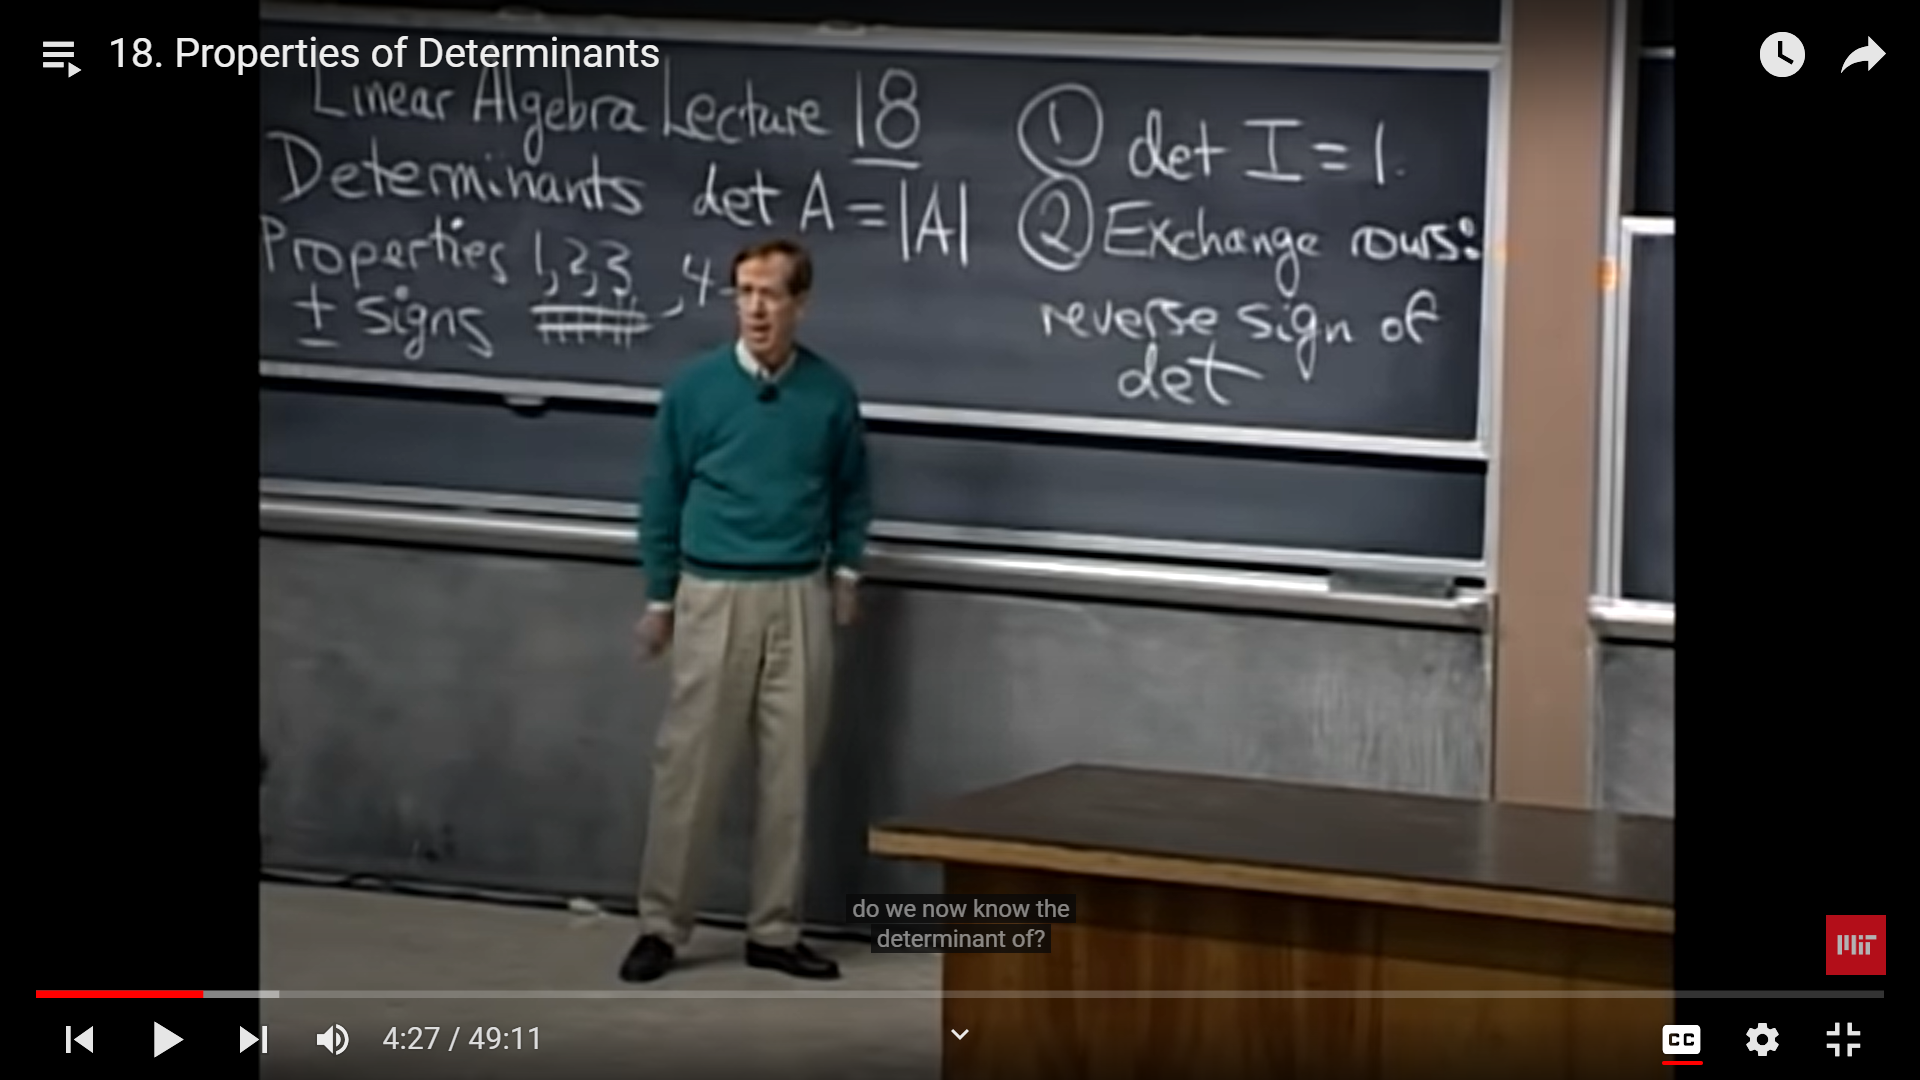 18. Properties of Determinants
Linear Algebra Lecture 18
Determinants det A = |A|
Properties 1,2,3,4-
± signs
① det I = 1.
② Exchange rows:
reverse sign of
det
do we now know the
determinant of?
MIT
4:27 / 49:11
CC